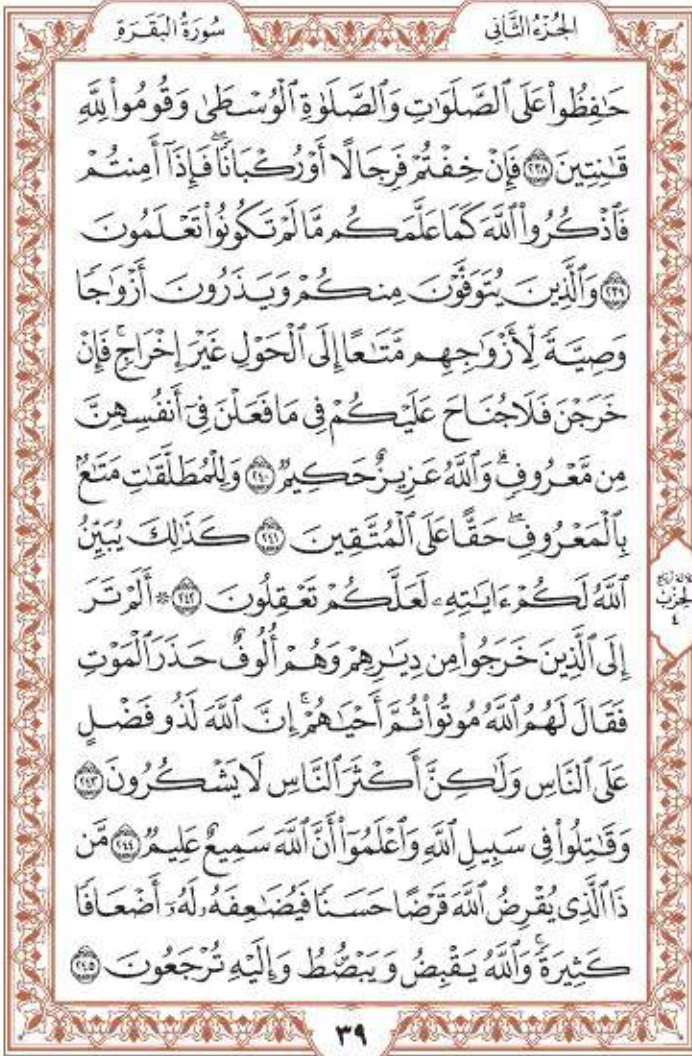 الجُزْءُ الثَّانِي
سُورَةُ البَقَرَةِ
حَٰفِظُوا۟ عَلَى ٱلصَّلَوَٰتِ وَٱلصَّلَوٰةِ ٱلْوُسْطَىٰ وَقُومُوا۟ لِلَّهِ
قَٰنِتِينَ ٢٣٨ فَإِنْ خِفْتُمْ فَرِجَالًا أَوْ رُكْبَانًا ۖ فَإِذَآ أَمِنتُمْ
فَٱذْكُرُوا۟ ٱللَّهَ كَمَا عَلَّمَكُم مَّا لَمْ تَكُونُوا۟ تَعْلَمُونَ
٢٣٩ وَٱلَّذِينَ يُتَوَفَّوْنَ مِنكُمْ وَيَذَرُونَ أَزْوَٰجًا
وَصِيَّةً لِّأَزْوَٰجِهِم مَّتَٰعًا إِلَى ٱلْحَوْلِ غَيْرَ إِخْرَاجٍ ۚ فَإِنْ
خَرَجْنَ فَلَا جُنَاحَ عَلَيْكُمْ فِى مَا فَعَلْنَ فِىٓ أَنفُسِهِنَّ
مِن مَّعْرُوفٍ ۗ وَٱللَّهُ عَزِيزٌ حَكِيمٌ ٢٤٠ وَلِلْمُطَلَّقَٰتِ مَتَٰعٌۢ
بِٱلْمَعْرُوفِ ۖ حَقًّا عَلَى ٱلْمُتَّقِينَ ٢٤١ كَذَٰلِكَ يُبَيِّنُ
ٱللَّهُ لَكُمْ ءَايَٰتِهِۦ لَعَلَّكُمْ تَعْقِلُونَ ٢٤٢ ۞ أَلَمْ تَرَ
إِلَى ٱلَّذِينَ خَرَجُوا۟ مِن دِيَٰرِهِمْ وَهُمْ أُلُوفٌ حَذَرَ ٱلْمَوْتِ
فَقَالَ لَهُمُ ٱللَّهُ مُوتُوا۟ ثُمَّ أَحْيَٰهُمْ ۚ إِنَّ ٱللَّهَ لَذُو فَضْلٍ
عَلَى ٱلنَّاسِ وَلَٰكِنَّ أَكْثَرَ ٱلنَّاسِ لَا يَشْكُرُونَ ٢٤٣
وَقَٰتِلُوا۟ فِى سَبِيلِ ٱللَّهِ وَٱعْلَمُوٓا۟ أَنَّ ٱللَّهَ سَمِيعٌ عَلِيمٌ ٢٤٤ مَّن
ذَا ٱلَّذِى يُقْرِضُ ٱللَّهَ قَرْضًا حَسَنًا فَيُضَٰعِفَهُۥ لَهُۥٓ أَضْعَافًا
كَثِيرَةً ۚ وَٱللَّهُ يَقْبِضُ وَيَبْصُۜطُ وَإِلَيْهِ تُرْجَعُونَ ٢٤٥
الحِزْبِ
٤
٣٩